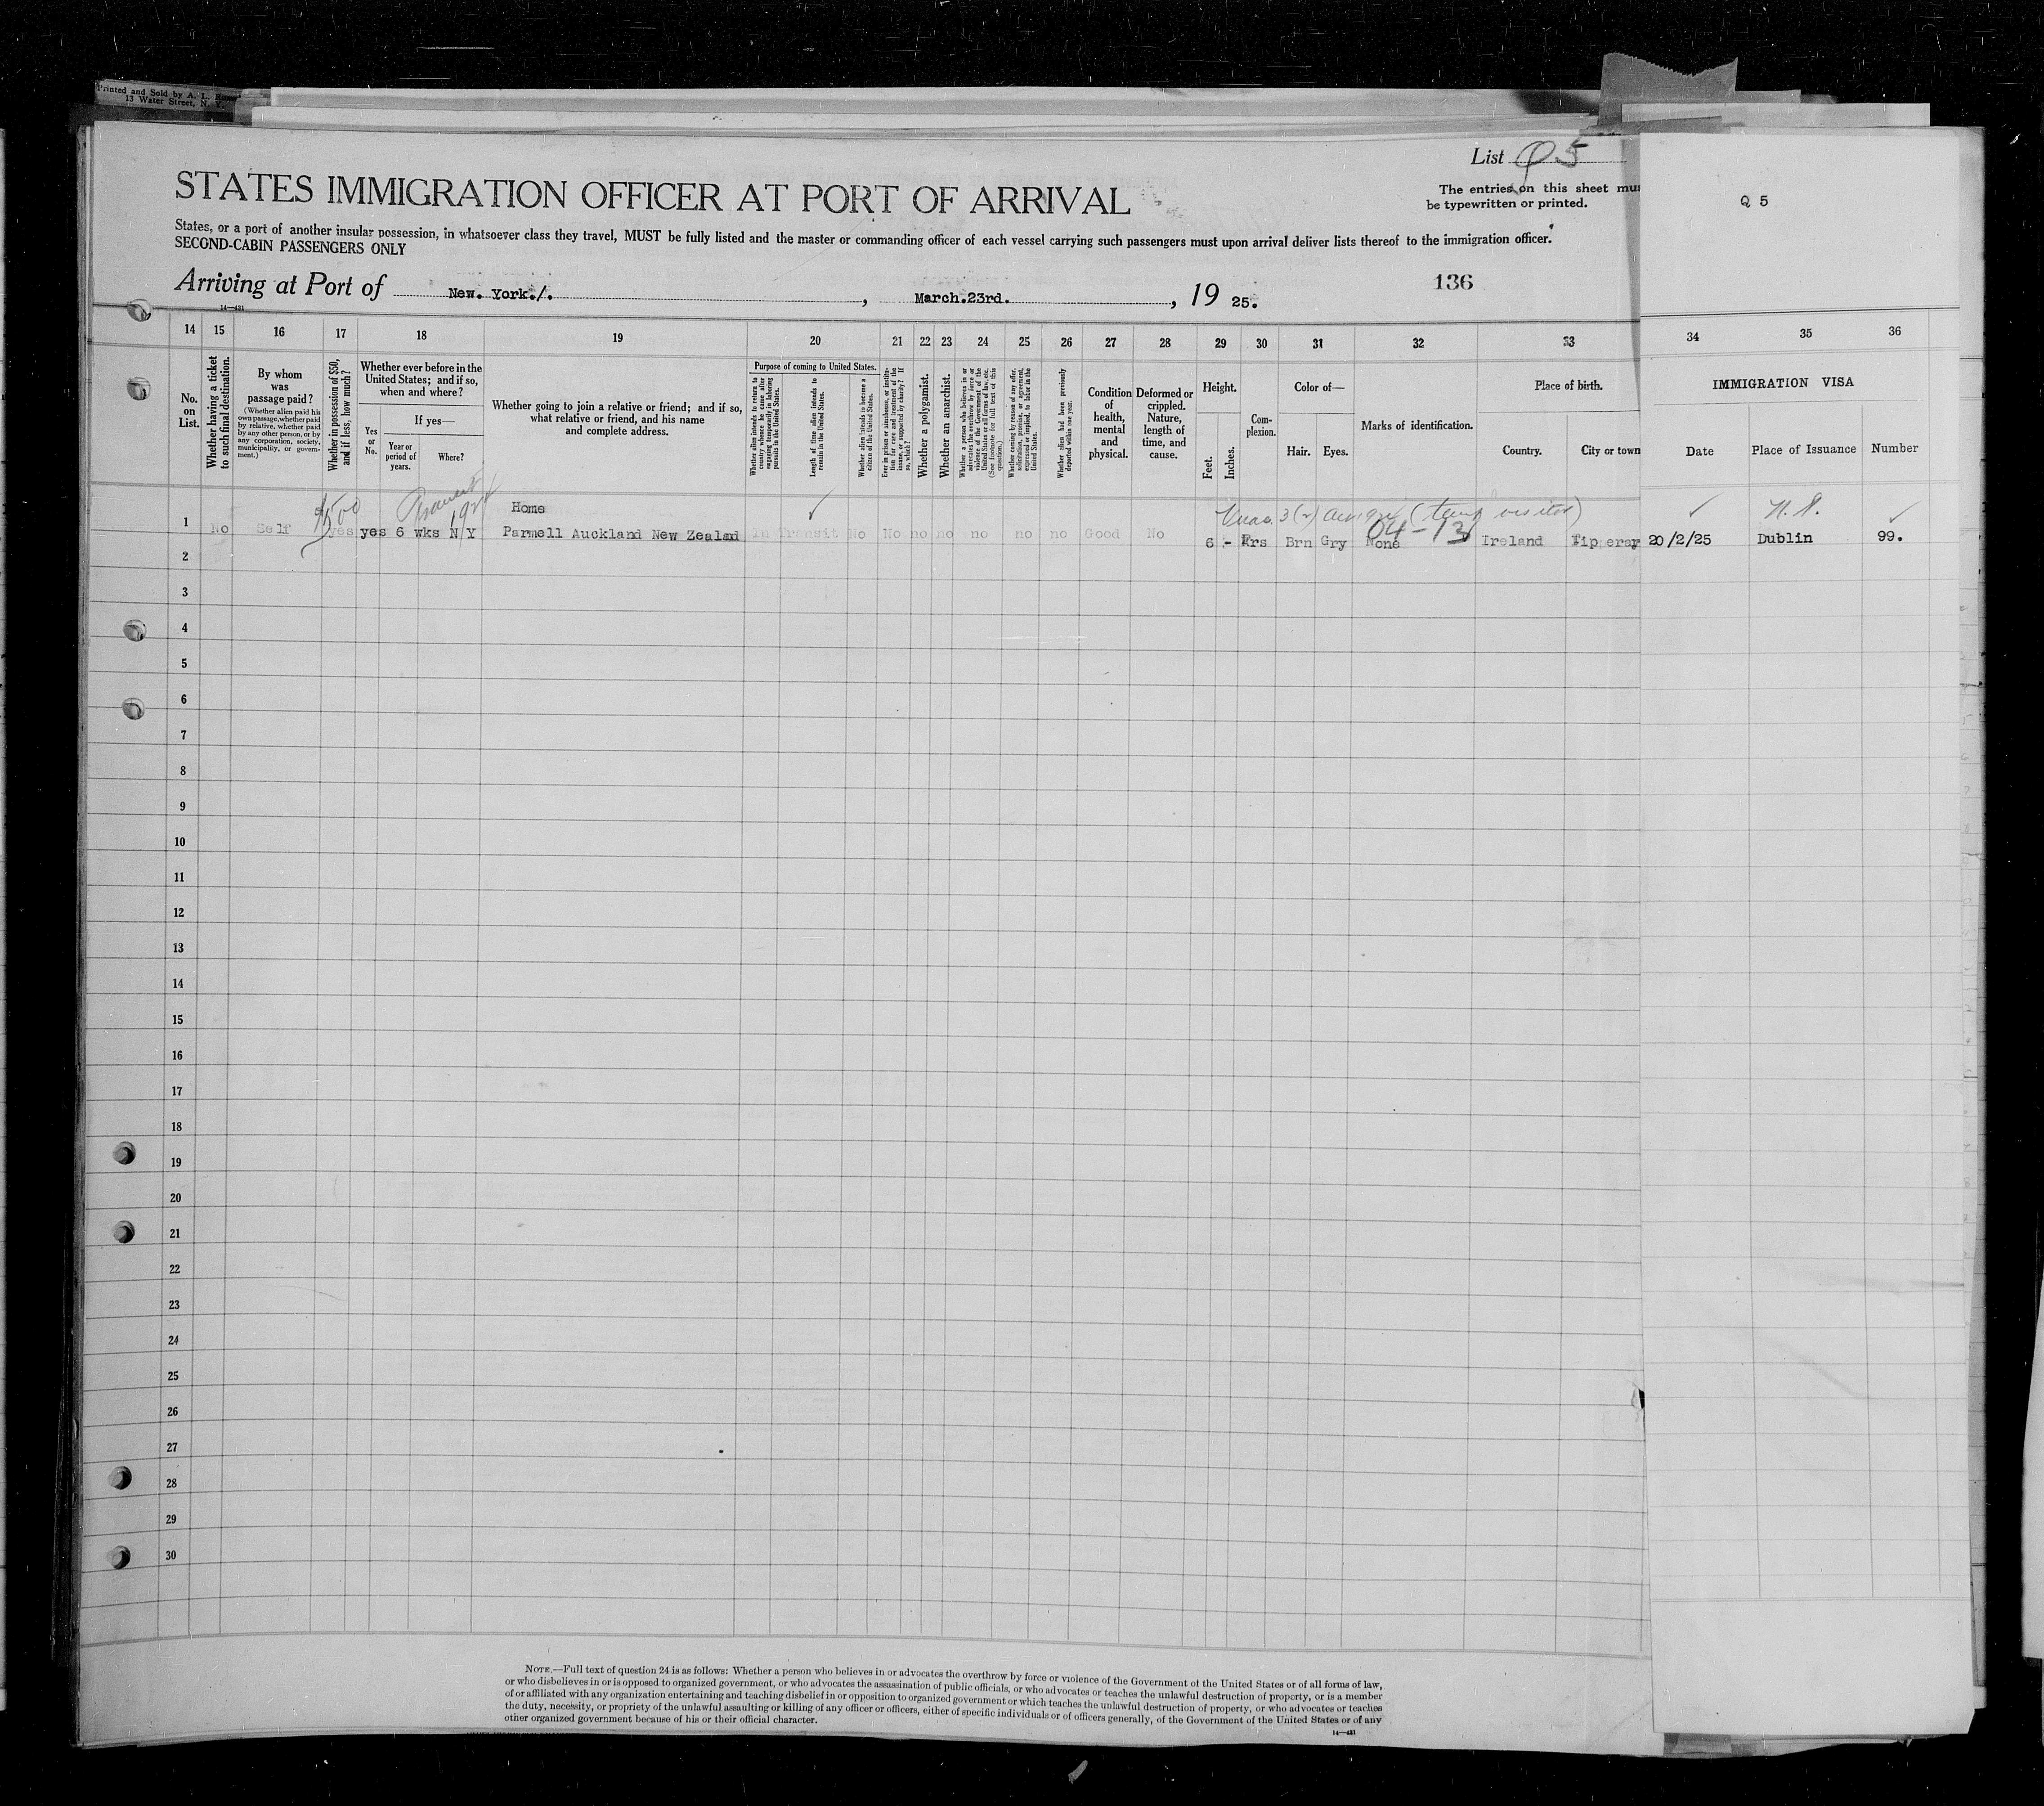 Printed and Sold by A. L.
13 Water Street, N. Y.
List Q5
The entries on this sheet mus
be typewritten or printed.
Q 5
STATES IMMIGRATION OFFICER AT PORT OF ARRIVAL
States, or a port of another insular possession, in whatsoever class they travel, MUST be fully listed and the master or commanding officer of each vessel carrying such passengers must upon arrival deliver lists thereof to the immigration officer.
SECOND-CABIN PASSENGERS ONLY
Arriving at Port of New. York./. , March.23rd. , 19 25.
136
14—431
14 15 16 17 18 19 20 21 22 23 24 25 26 27 28 29 30 31 32 33 34 35 36
No. on List.
Whether having a ticket to such final destination.
By whom was passage paid?
(Whether alien paid his own passage, whether paid by relative, whether paid by any other person, or by any corporation, society, municipality, or government.)
Whether in possession of $50, and if less, how much?
Whether ever before in the United States; and if so, when and where?
Yes or No.
If yes—
Year or period of years.
Where?
Whether going to join a relative or friend; and if so, what relative or friend, and his name and complete address.
Purpose of coming to United States.
Whether alien intends to return to country whence he came after engaging temporarily in laboring pursuits in the United States.
Length of time alien intends to remain in the United States.
Whether alien intends to become a citizen of the United States.
Ever in prison or almshouse, or institution for care and treatment of the insane, or supported by charity? If so, which?
Whether a polygamist.
Whether an anarchist.
Whether a person who believes in or advocates the overthrow by force or violence of the Government of the United States or all forms of law, etc. (See footnote for full text of this question.)
Whether coming by reason of any offer, solicitation, promise, or agreement, expressed or implied, to labor in the United States.
Whether alien had been previously deported within one year.
Condition of health, mental and physical.
Deformed or crippled. Nature, length of time, and cause.
Height.
Feet. Inches.
Complexion.
Color of—
Hair. Eyes.
Marks of identification.
Place of birth.
Country. City or town
IMMIGRATION VISA
Date Place of Issuance Number
$500 192 3(2) (temp visitor) ✓ ✓ ✓
04-13
Home
1 No Self yes yes 6 wks N Y Parnell Auckland New Zealand In Transit No No no no no no no Good No 6 - Frs Brn Gry None Ireland Tipperar 20/2/25 Dublin 99.
2
3
4
5
6
7
8
9
10
11
12
13
14
15
16
17
18
19
20
21
22
23
24
25
26
27
28
29
30
NOTE.—Full text of question 24 is as follows: Whether a person who believes in or advocates the overthrow by force or violence of the Government of the United States or of all forms of law,
or who disbelieves in or is opposed to organized government, or who advocates the assassination of public officials, or who advocates or teaches the unlawful destruction of property, or is a member
of or affiliated with any organization entertaining and teaching disbelief in or opposition to organized government or which teaches the unlawful destruction of property, or who advocates or teaches
the duty, necessity, or propriety of the unlawful assaulting or killing of any officer or officers, either of specific individuals or of officers generally, of the Government of the United States or of any
other organized government because of his or their official character.
14—431